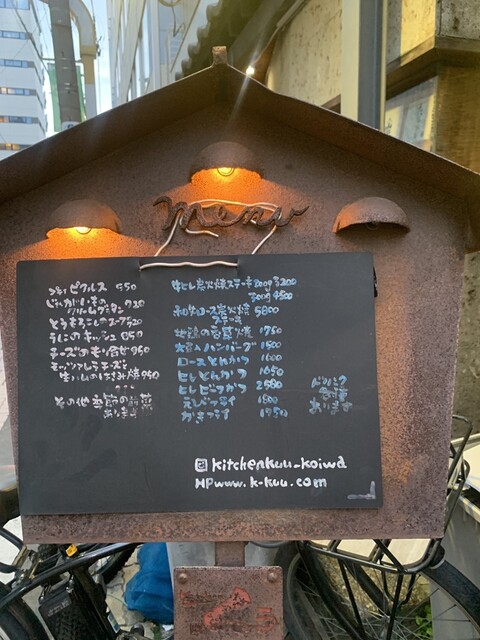 menu
ピクルス 550
じゃがいもの
クリームグラタン 720
とうもろこしのスープ 520
うにのキッシュ 850
チーズのもり合せ 950
モッツァレラチーズと
生ハムのはさみ焼 950
その他季節の前菜
あります
牛ヒレ炭火焼ステーキ 200g 3200
300g 4500
和牛ロース炭火焼 5800
ステーキ
地鶏の香草焼 1750
大官人ハンバーグ 1500
ロースとんかつ 1600
ヒレとんかつ 1650
ヒレビフカツ 2580
えびフライ 1800
かきフライ 1950
ドリンク
あります
@kitchenkuu_koiwa
HPwww.k-kuu.com